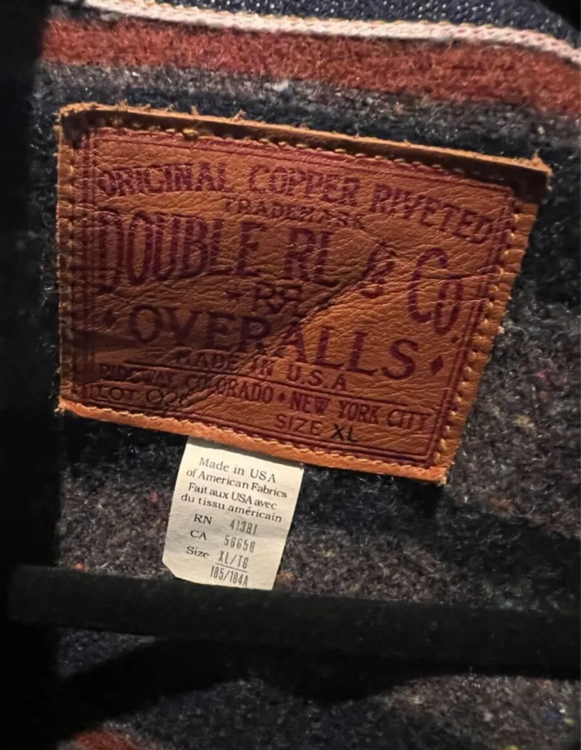 ORIGINAL COPPER RIVETED
TRADEMARK
DOUBLE RL & Co.
RR
OVERALLS
MADE IN U.S.A
RIDGWAY COLORADO • NEW YORK CITY
LOT 020
SIZE XL
Made in USA
of American Fabrics
Fait aux USA avec
du tissu américain
RN 41381
CA 56658
Size XL/TG
185/104A